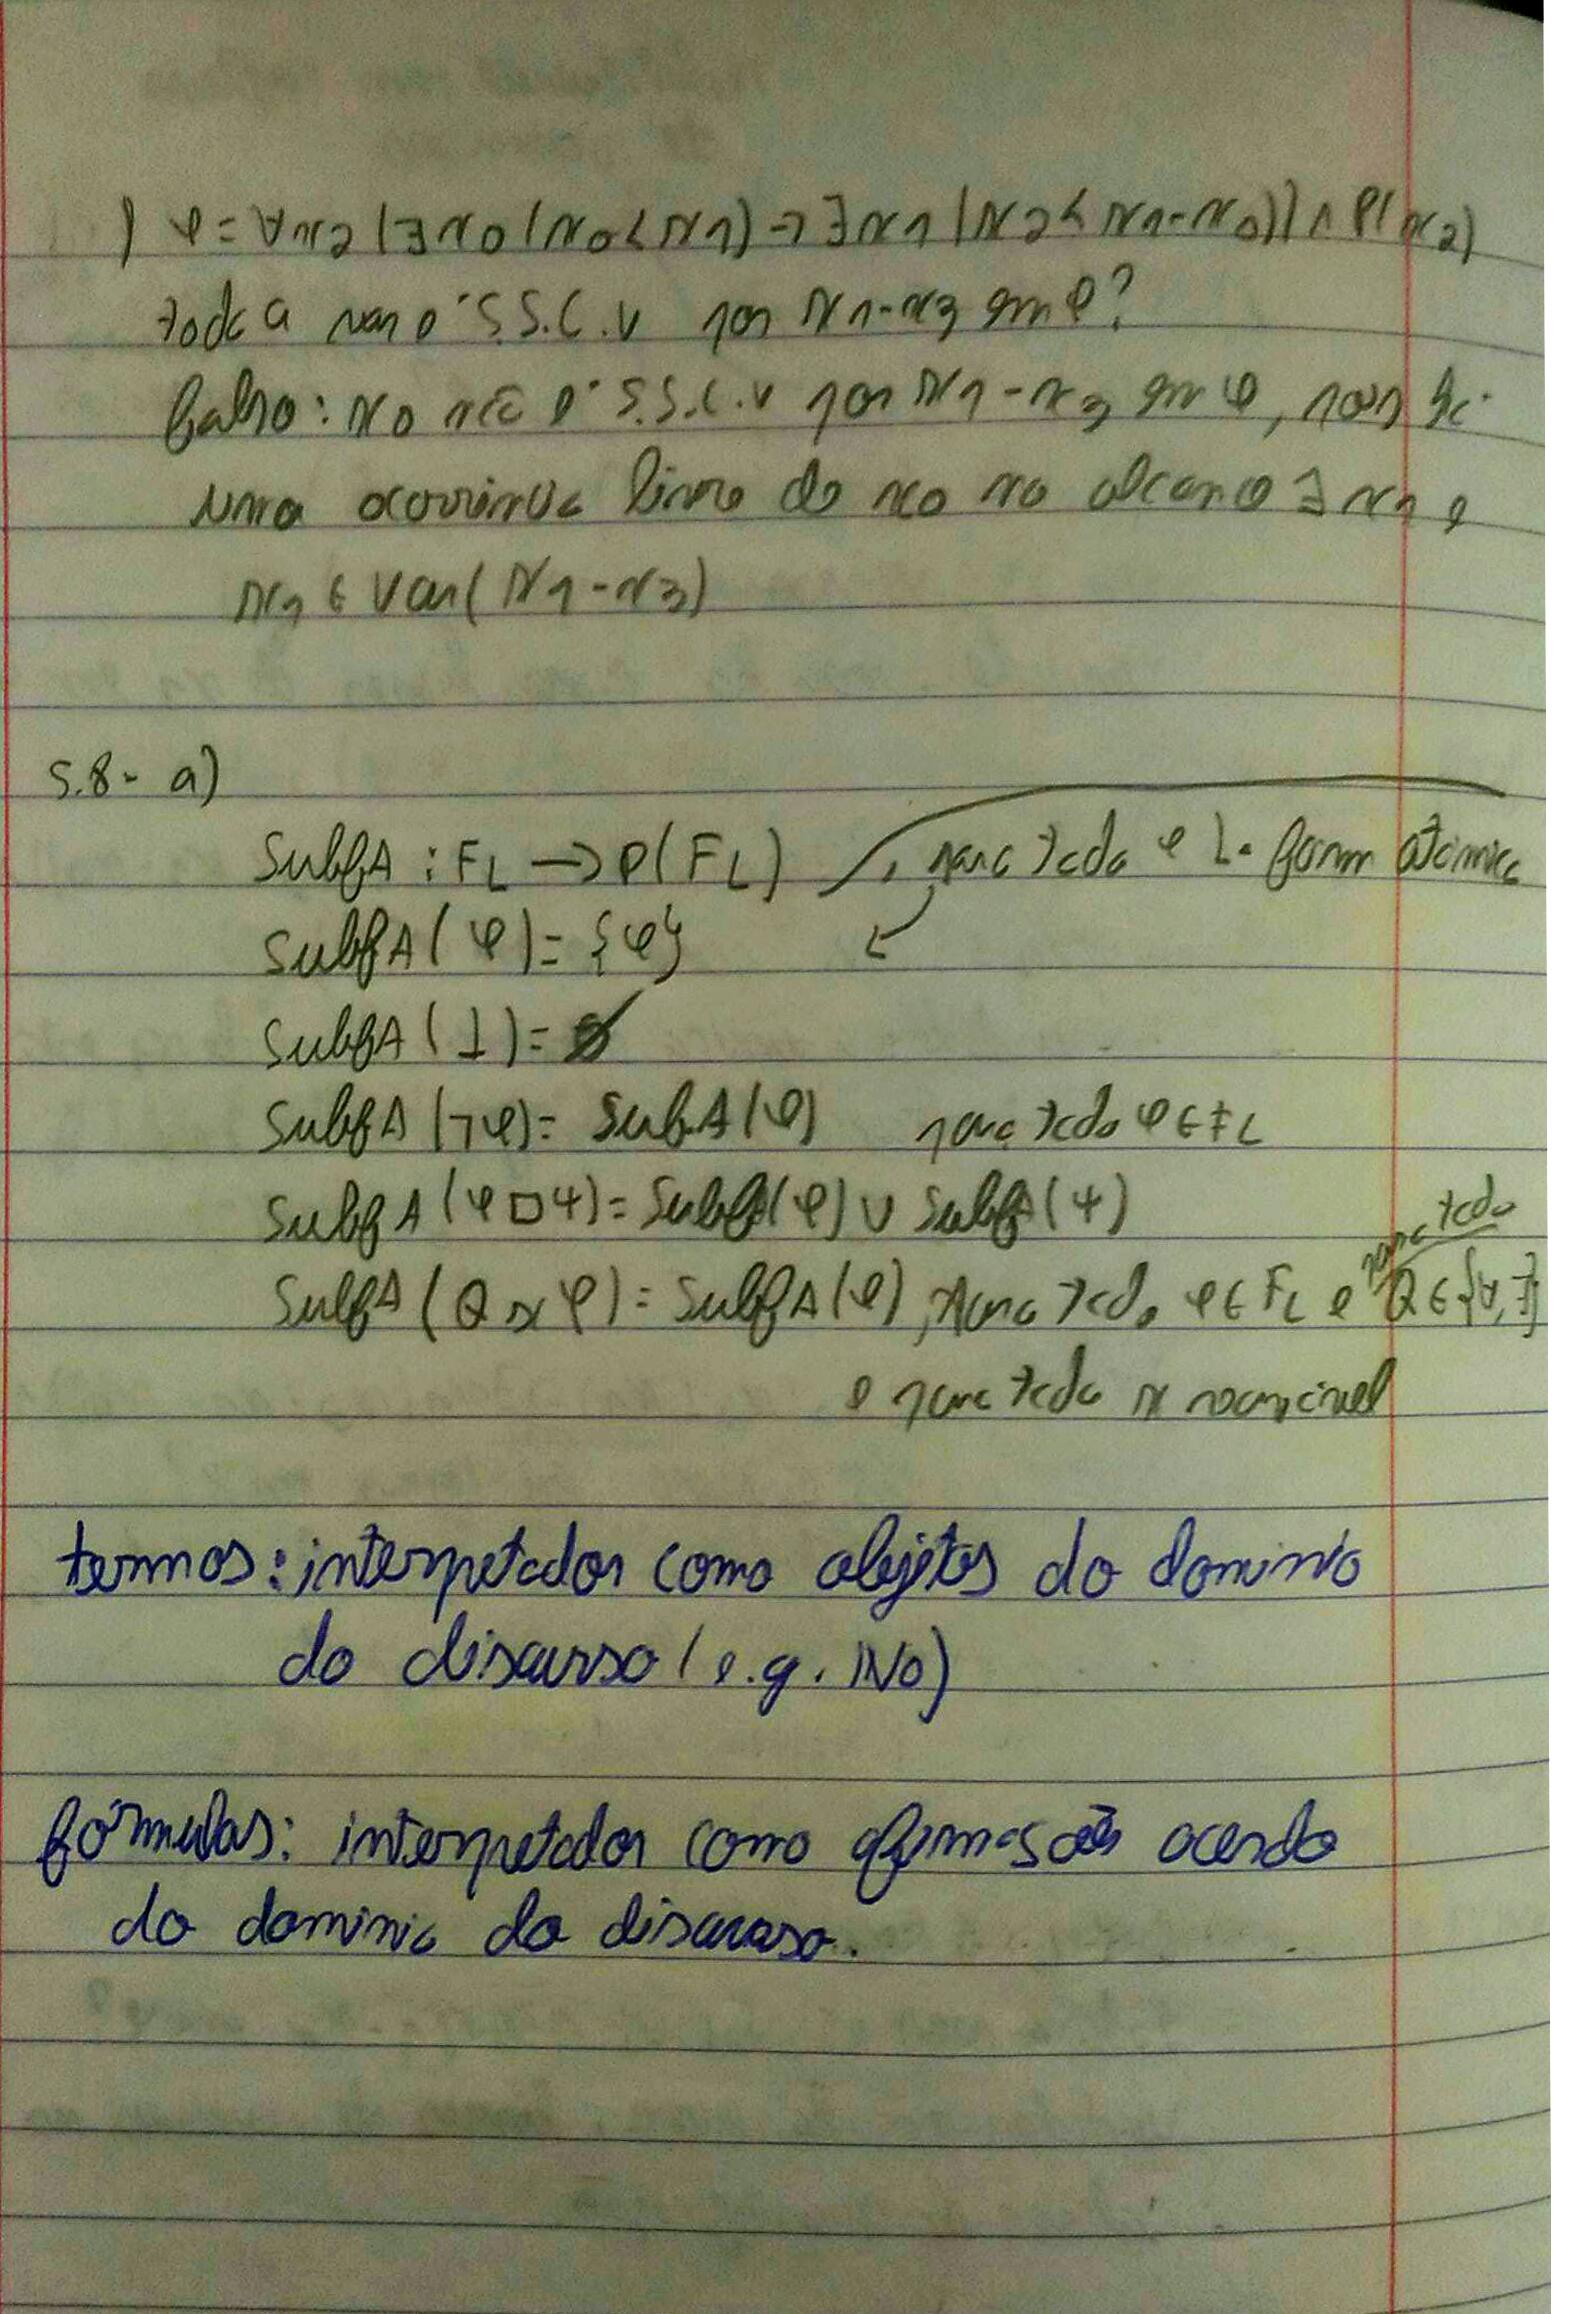 ) φ = ∀x2 (∃x0 (x0 < x1) → ∃x1 (x2 < x1 - x0)) ∧ P(x2)
toda a var é S.S.C.V por x1-x3 em φ?
Falso: x0 não é S.S.C.V por x1-x3 em φ, pois há
uma ocorrência livre de x0 no alcance ∃x1 e
x1 ∈ Var(x1-x3)
5.8- a)
SubfA : FL → P(FL) , para todo φ L-form atómica
SubfA(φ) = {φ}
SubfA(⊥) = ∅
SubfA(¬φ) = SubfA(φ) para todo φ ∈ FL
SubfA(φ□ψ) = SubfA(φ) ∪ SubfA(ψ)
SubfA(Qxφ) = SubfA(φ), para todo φ ∈ FL e para todo Q ∈ {∀,∃}
e para todo x variável
termos: interpretados como objetos do dominio
do discurso (e.g. ℕ0)
fórmulas: interpretados como afirmações acerda
do dominio do discurso.